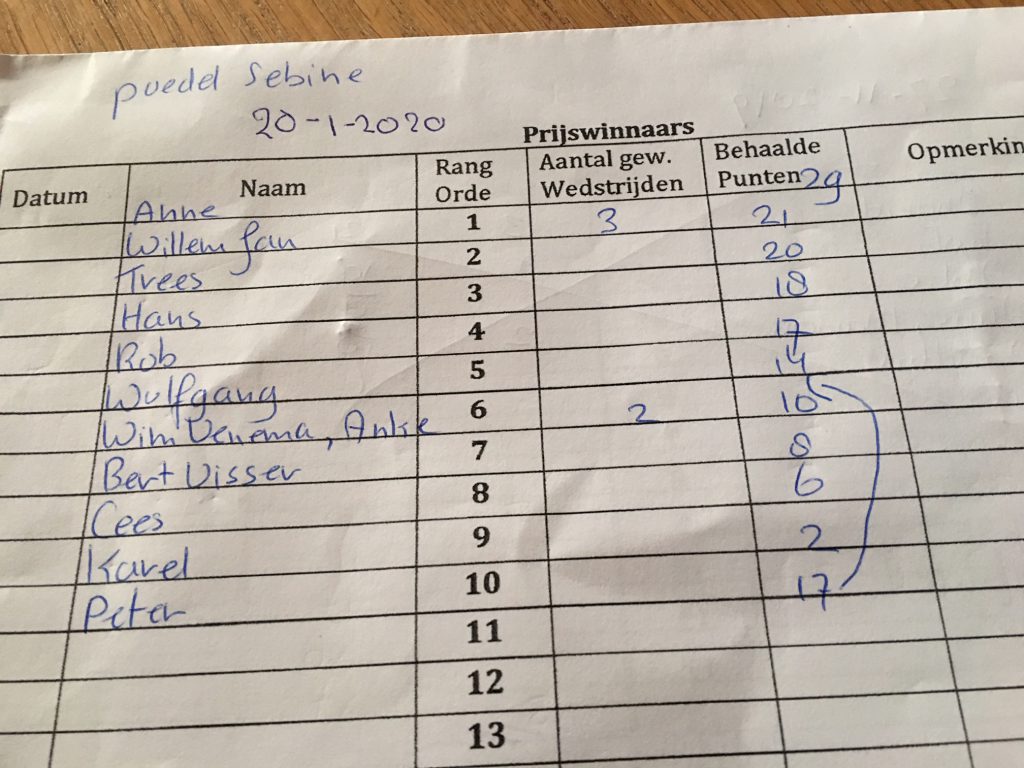 poedel Sebine
20-1-2020
Prijswinnaars
Datum Naam Rang Orde Aantal gew. Wedstrijden Behaalde Punten
Anne 29
Willem Jan 1 3 21
Trees 2 20
Hans 3 18
Rob 4 17
Wolfgang 5 14
Wim Venema, Anke 6 2 10
Bert Visser 7 8
Cees 8 6
Karel 9 2
Peter 10 17
11
12
13